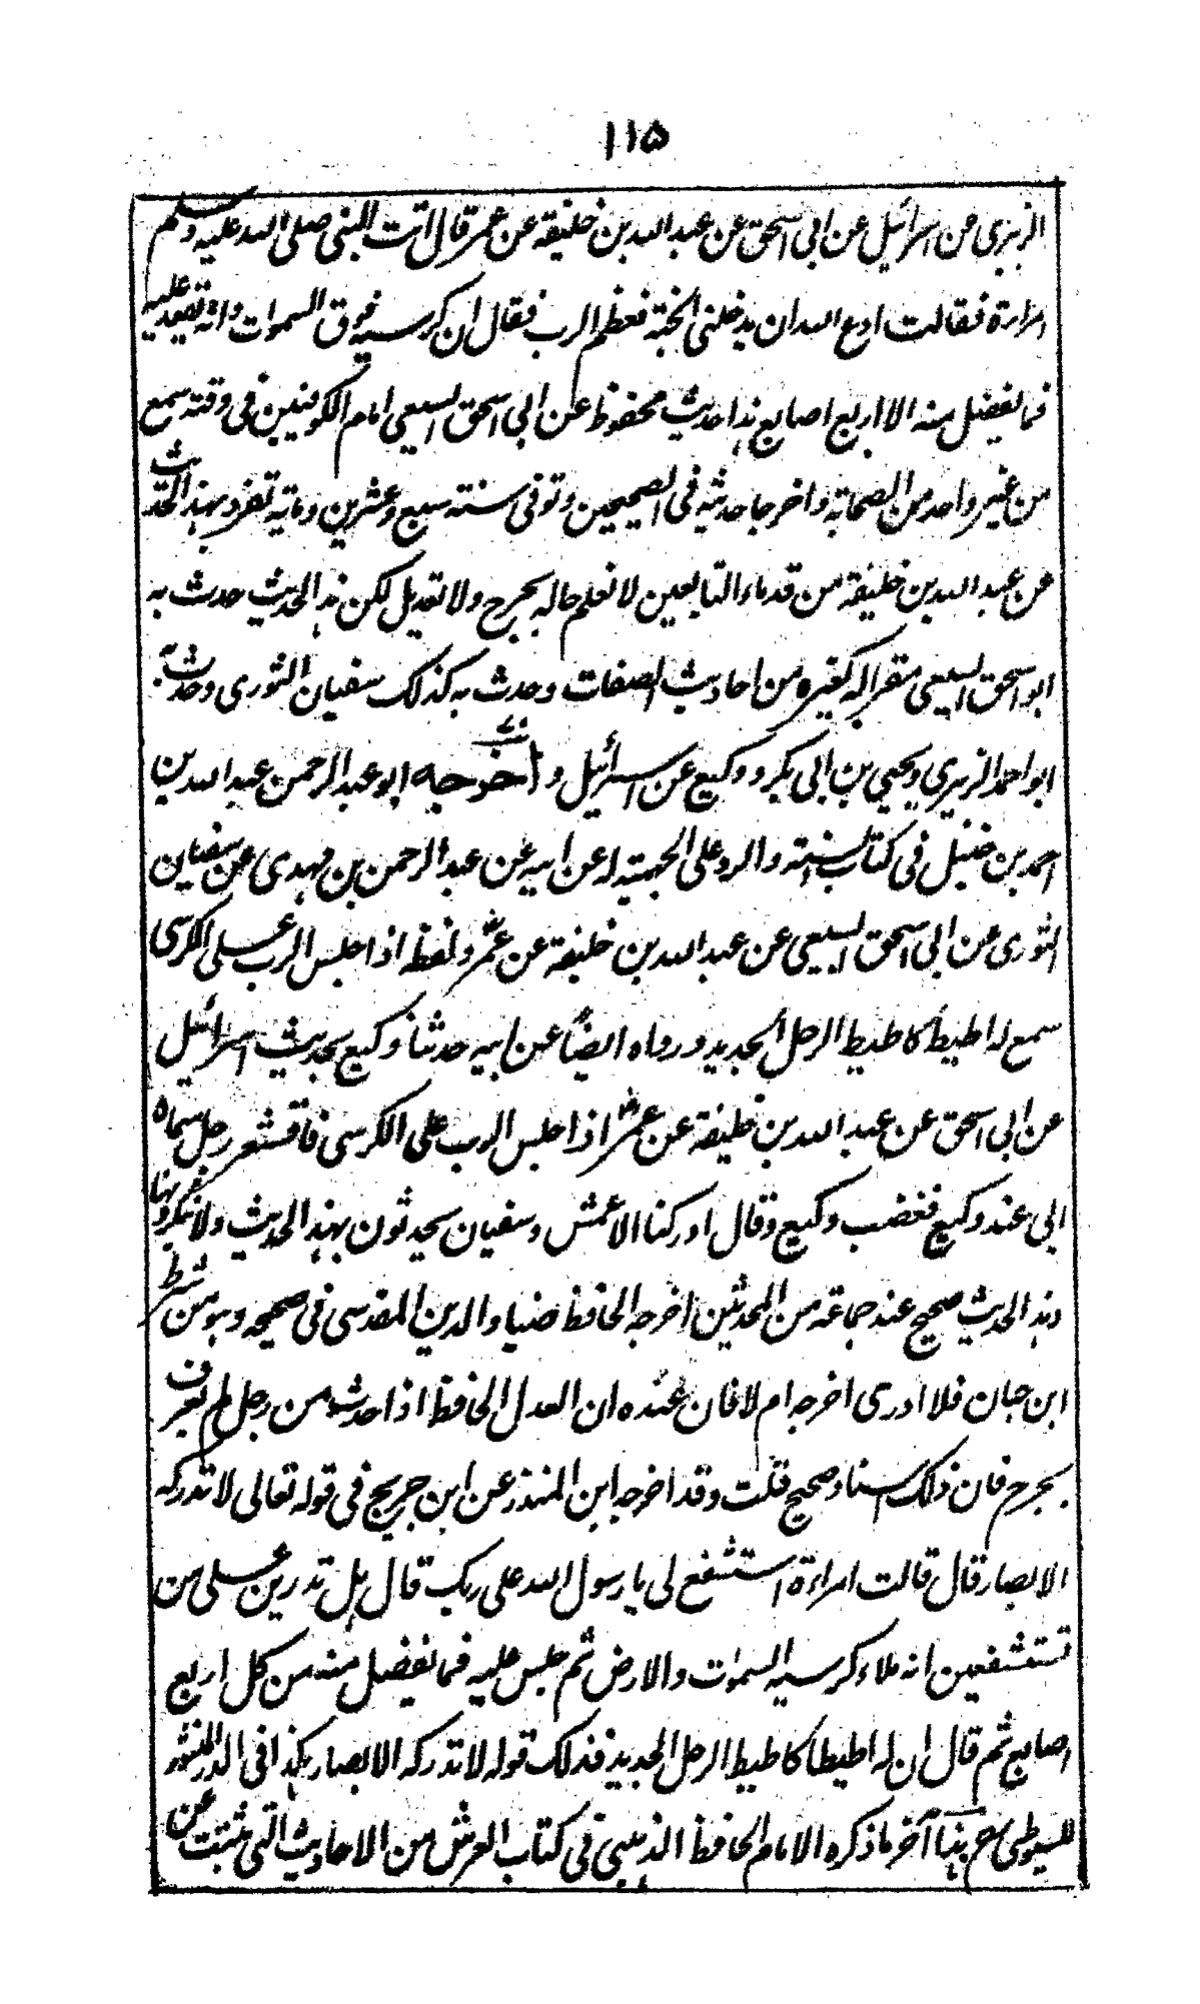 ١١٥
الزبيري عن اسرائيل عن ابي اسحق عن عبد الله بن خليفة عن عمر قال اتت النبي صلى الله عليه وسلم
امراءة فقالت ادع الله ان يدخلني الجنة فعظم الرب فقال ان كرسيه فوق السموات وانه تقعد عليه
فما يفضل منه الا اربع اصابع هذا حديث محفوظ عن ابي اسحق السبيعي امام الكوفيين في وقته سمع
من غير واحد من الصحابة واخرجا حديثه في الصحيحين وتوفي سنة سبع وعشرين وماية تفرد بهذا الحديث
عن عبد الله بن خليفة من قدماء التابعين لا نعلم حاله بجرح ولا تعديل لكن هذا الحديث حدث به
ابو اسحق السبيعي مقرا له كغيره من احاديث الصفات وحدث به كذلك سفيان الثوري وحدث به
ابو احمد الزبيري ويحيى بن ابي بكر ووكيع عن اسرائيل و اخرجه ابو عبد الرحمن عبد الله بن
احمد بن حنبل في كتاب السنة والرد على الجهمية له عن ابيه عن عبد الرحمن بن مهدي عن سفيان
الثوري عن ابي اسحق السبيعي عن عبد الله بن خليفة عن عمر ولفظه اذا جلس الرب على الكرسي
سمع له اطيط كاطيط الرحل الجديد ورواه ايضا عن ابيه حدثنا وكيع بحديث اسرائيل
عن ابي اسحق عن عبد الله بن خليفة عن عمر اذا جلس الرب على الكرسي فاقشعر رجل سماه
ابي عند وكيع فغضب وكيع وقال ادركنا الاعمش وسفيان يحدثون بهذا الحديث ولا ينكرونها
وهذا الحديث صحيح عند جماعة من المحدثين اخرجه الحافظ ضياء الدين المقدسي في صحيحه وهو من شرط
ابن حبان فلا ادري اخرجه ام لا فان عنده ان العدل الحافظ اذا حدث من رجل لم يعرف
بجرح فان ذلك اسناد صحيح قلت وقد اخرجه ابن المنذر عن ابن جريج في قوله تعالى لا تدركه
الابصار قال قالت امراءة استشفع لي يا رسول الله على ربك قال هل تدرين على من
تستشفعين انه ملاء كرسيه السموات والارض ثم جلس عليه فما يفضل منه من كل اربع
اصابع ثم قال ان له اطيطا كاطيط الرحل الجديد فذلك قوله لا تدركه الابصار هكذا في الدر المنثور
للسيوطي رح هنا آخر ما ذكره الامام الحافظ الذهبي في كتاب العرش من الاحاديث التي ثبتت عن